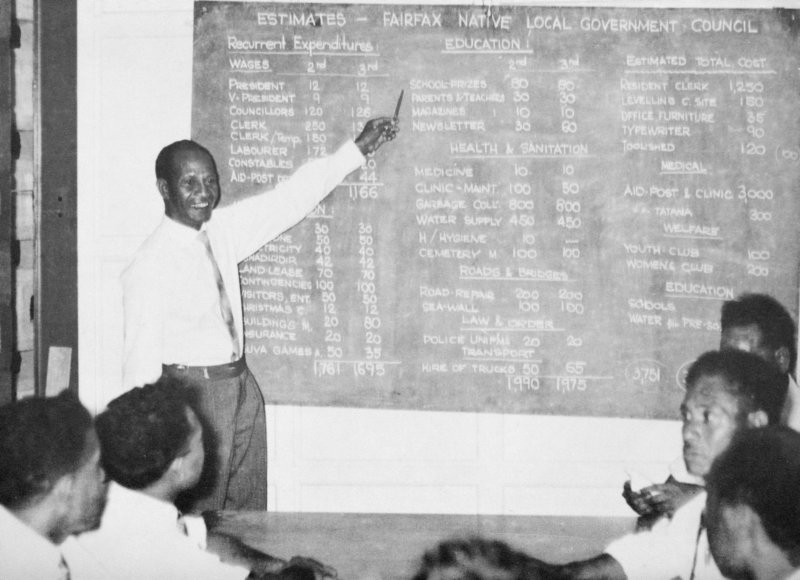 ESTIMATES - FAIRFAX NATIVE LOCAL GOVERNMENT COUNCIL
Recurrent Expenditures:
WAGES 2nd 3rd
PRESIDENT 12 12
V-PRESIDENT 9 9
COUNCILLORS 120 126
CLERK 250
CLERK/Temp. 150
LABOURER 172
CONSTABLES 20
AID-POST 44
1,166
30 30
50 50
40 40
42 42
LAND-LEASE 70 70
CONTINGENCIES 100 100
VISITORS, ENT. 50 50
CHRISTMAS 12 12
BUILDINGS M. 20 80
INSURANCE 20 20
SUVA GAMES 50 35
1,781 1,695
EDUCATION:
2nd 3rd
SCHOOL-PRIZES 80 80
PARENTS & TEACHERS 30 30
MAGAZINES 10 10
NEWSLETTER 30 60
HEALTH & SANITATION
MEDICINE 10 10
CLINIC-MAINT. 100 50
GARBAGE COLL. 800 800
WATER SUPPLY 450 450
H/HYGIENE 10 —
CEMETERY M. 100 100
ROADS & BRIDGES
ROAD-REPAIR 200 200
SEA-WALL 100 100
LAW & ORDER
POLICE UNIFMS 20 20
TRANSPORT
HIRE OF TRUCKS 50 65
1,990 1,975
ESTIMATED TOTAL COST
RESIDENT CLERK 1,250
LEVELLING C. SITE 150
OFFICE FURNITURE 35
TYPEWRITER 90
TOOLSHED 120
MEDICAL
AID-POST & CLINIC 3,000
TATANA 300
WELFARE
YOUTH CLUB 100
WOMEN'S CLUB 200
EDUCATION
SCHOOLS
WATER
(3,751